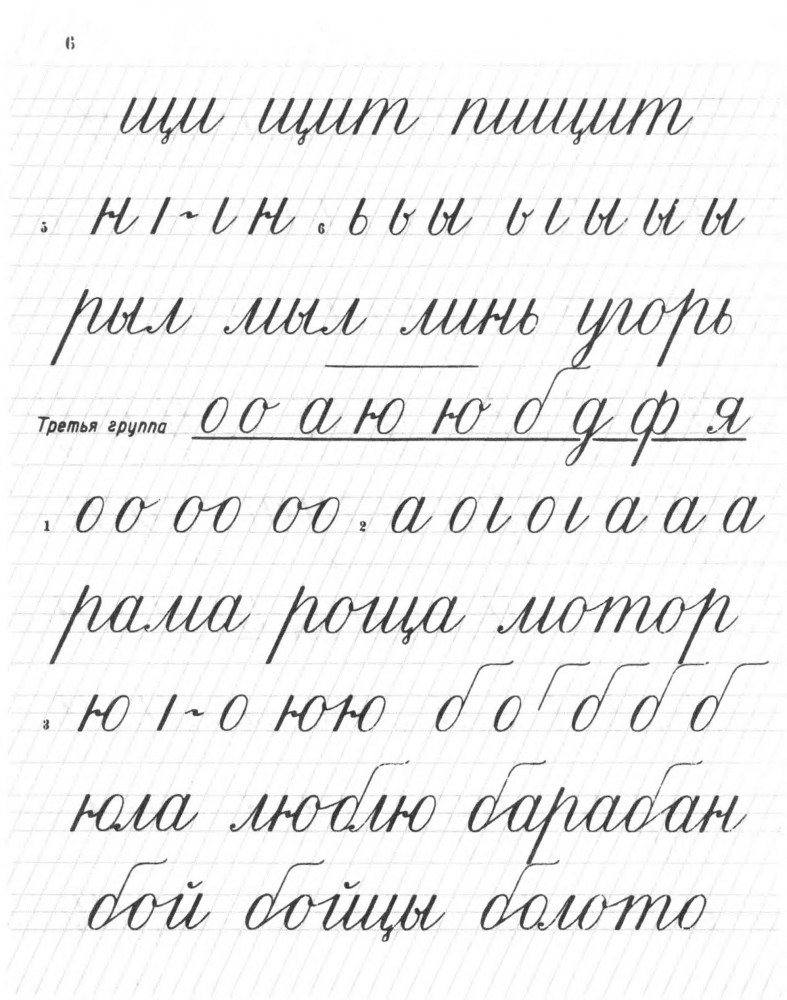 6
щи щит пищит
5 н ı ~ ι н 6 ь ь ы ь ι ы ы ы
рыл мыл линь угорь
Третья группа о о а ю ю б д ф я
1 оо оо оо 2 а о ι о ι а а а
рама роща мотор
3 ю ı ~ о юю б о б б б
юла люблю барабан
бой бойцы болото